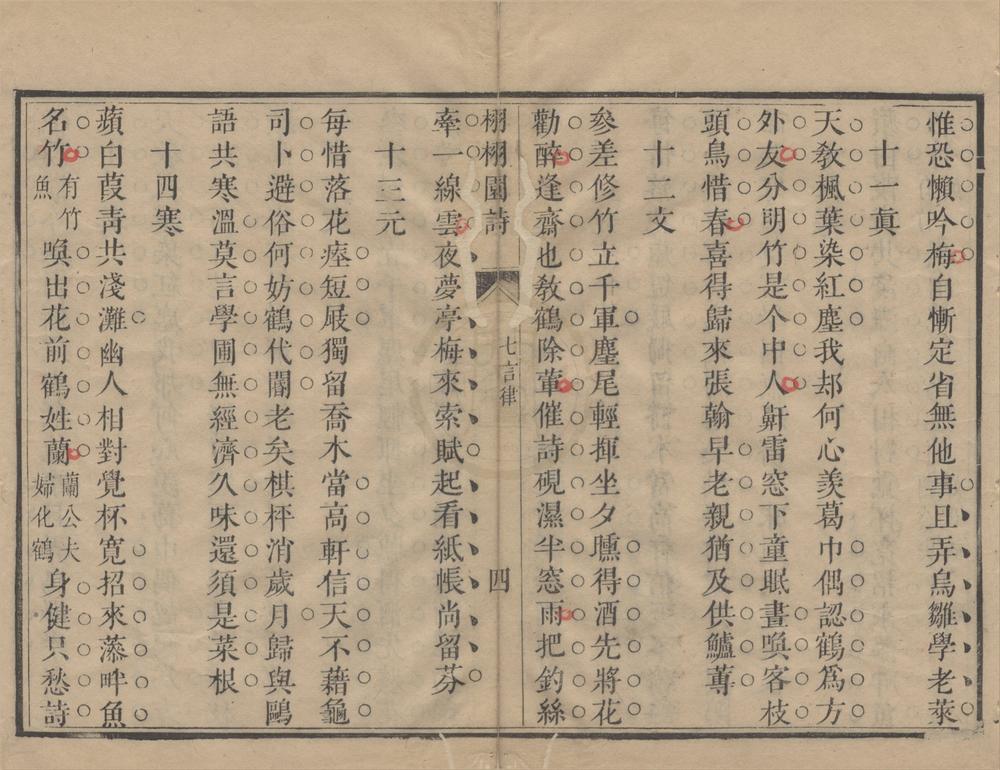 惟恐懶吟梅自慚定省無他事且弄鳥雛學老萊
十一眞
天敎楓葉染紅塵我却何心羨葛巾偶認鶴爲方
外友分明竹是个中人鼾雷窓下童眠晝喚客枝
頭鳥惜春喜得歸來張翰早老親猶及供鱸蓴
十二文
參差修竹立千軍麈尾輕揮坐夕曛得酒先將花
勸醉逢齋也敎鶴除葷催詩硯濕半窓雨把釣絲
栩栩園詩
七言律
四
牽一線雲夜夢亭梅來索賦起看紙帳尚留芬
十三元
每惜落花瘞短垣獨留喬木當高軒信天不藉龜
司卜避俗何妨鶴代閽老矣棋枰消歲月歸與鷗
語共寒溫莫言學圃無經濟久味還須是菜根
十四寒
蘋白葭靑共淺灘幽人相對覺杯寬招來蓼畔魚
名竹有竹魚喚出花前鶴姓蘭蘭公夫婦化鶴身健只愁詩